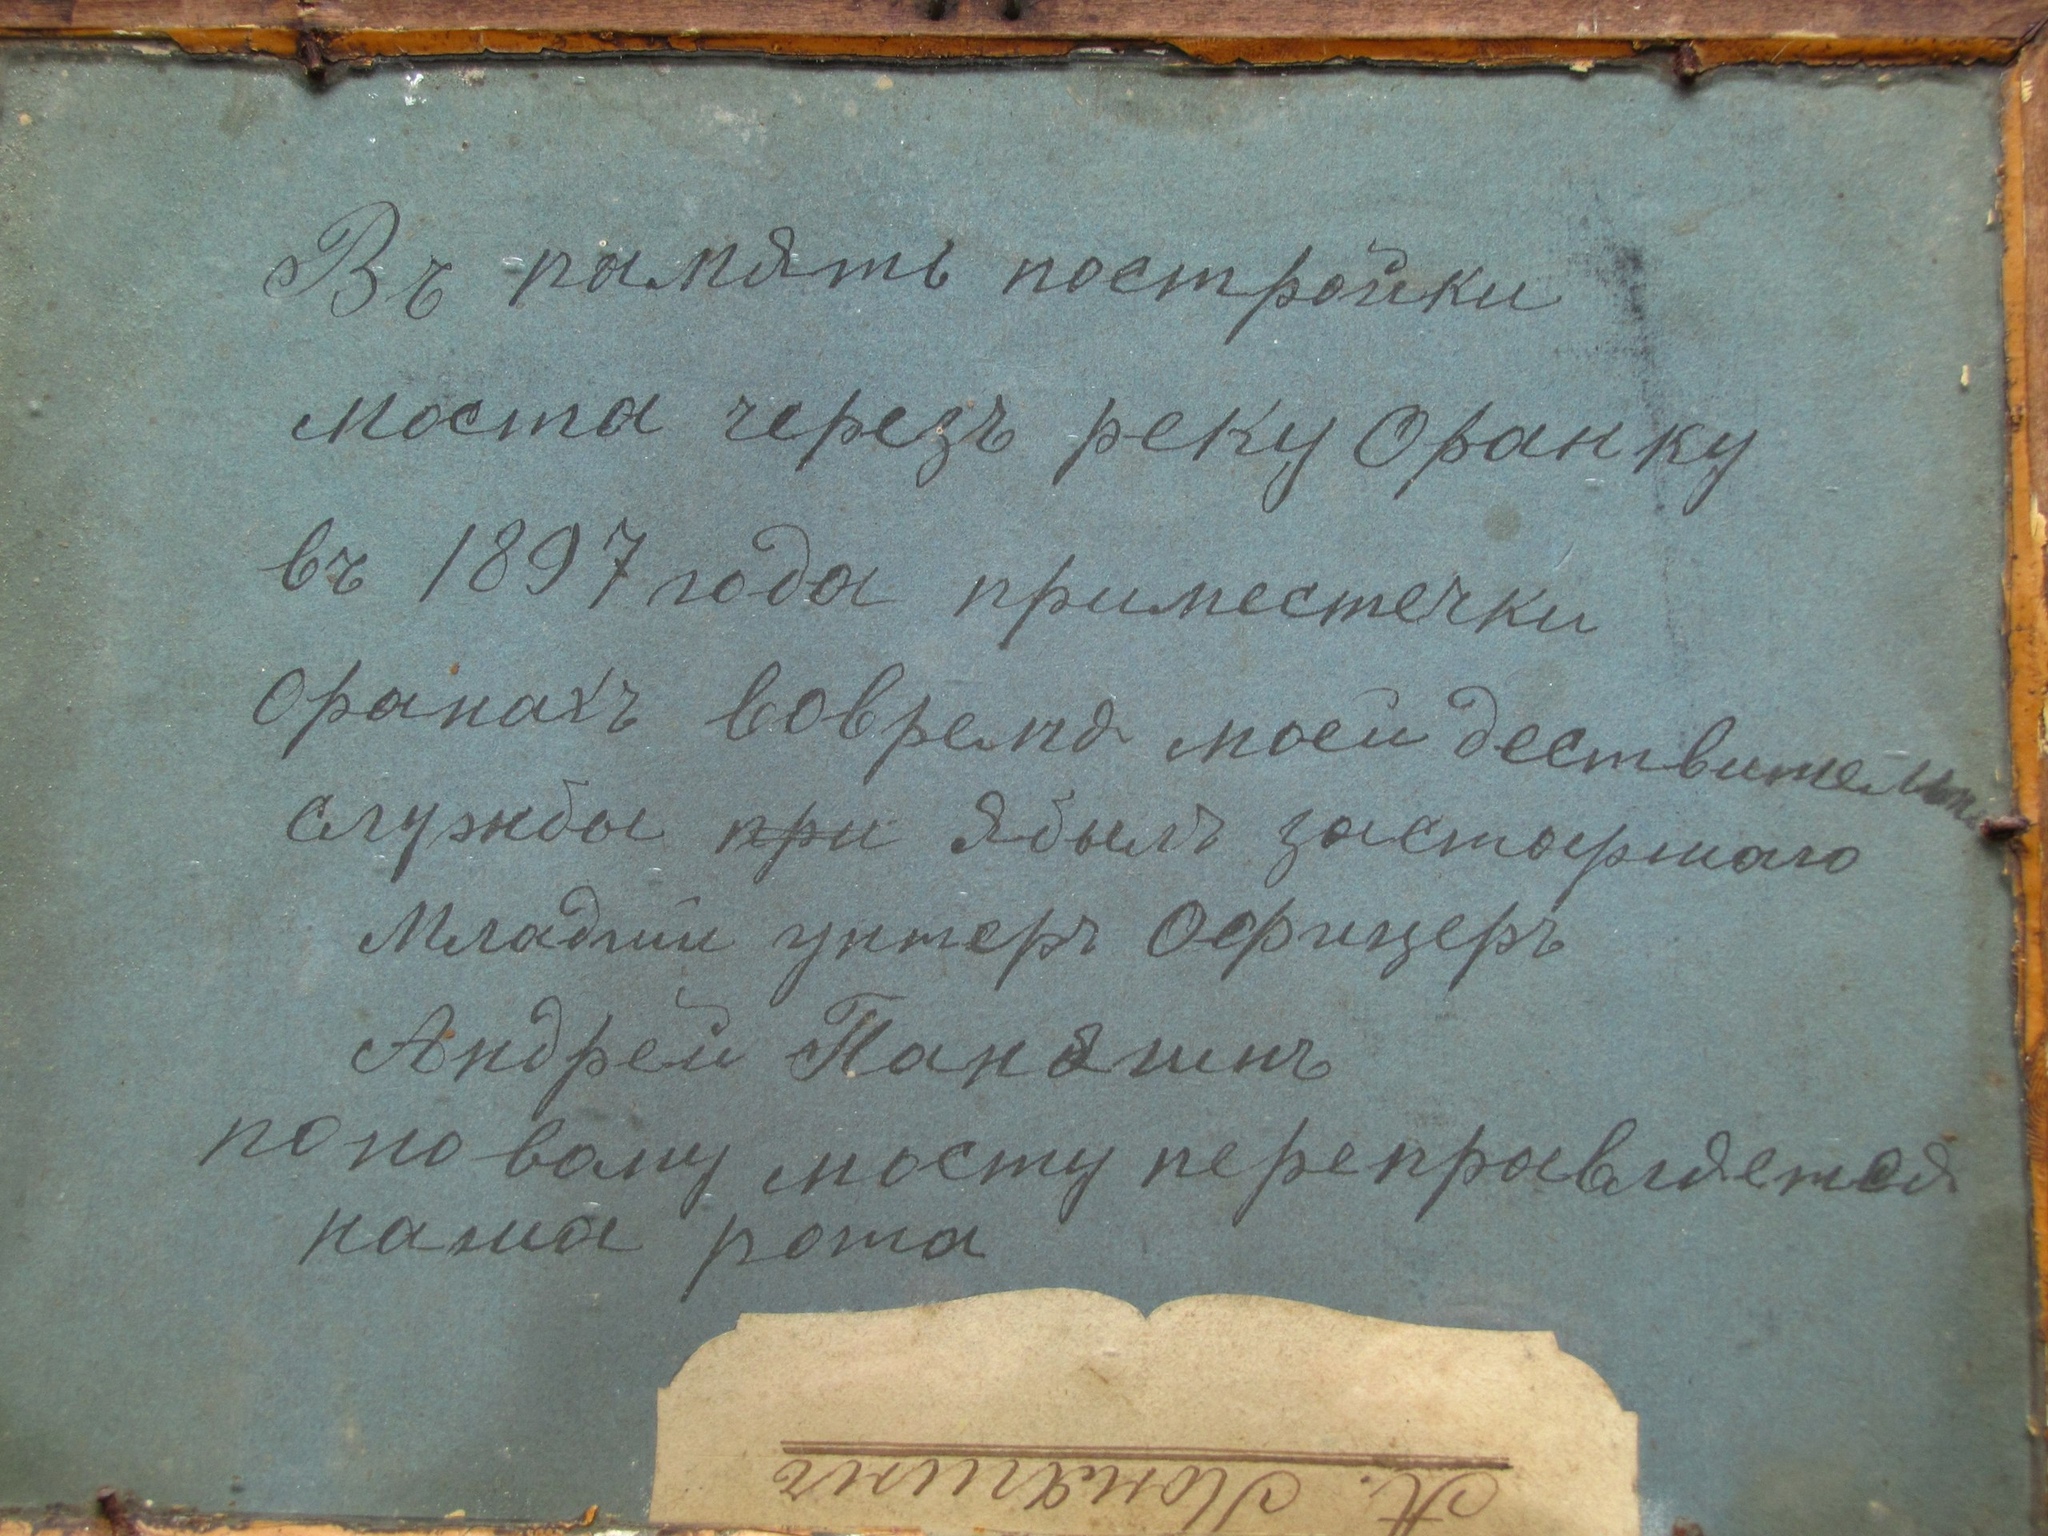 Въ память постройки
моста черезъ реку Оранку
въ 1897 года приместечки
Оранахъ вовремя моей дествительн
службы при я былъ застаршаго
Младшй унтеръ Офицеръ
Андрей Паняшинъ
по новому мосту переправляется
наша рота
А.